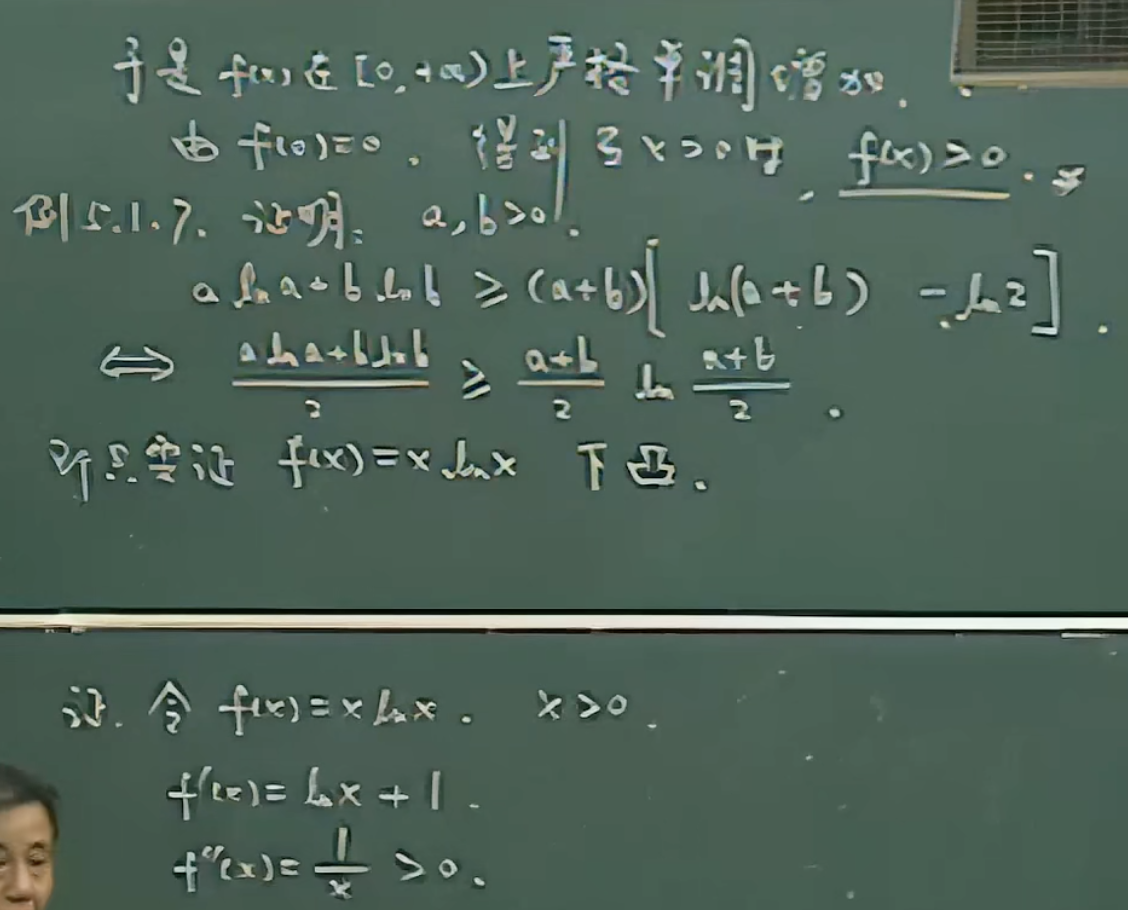 于是 f(x) 在 [0,+∞) 上严格单调增加.
由 f(0)=0. 得到 当 x>0 时, f(x)>0.
例5.1.7. 证明: a,b>0.
a ln a + b ln b ≥ (a+b)[ ln(a+b) - ln2 ].
⟺ (a ln a + b ln b)/2 ≥ (a+b)/2 ln (a+b)/2.
即只要证 f(x)=x ln x 下凸.
证. 令 f(x)=x ln x. x>0.
f'(x)= ln x + 1.
f''(x)= 1/x >0.